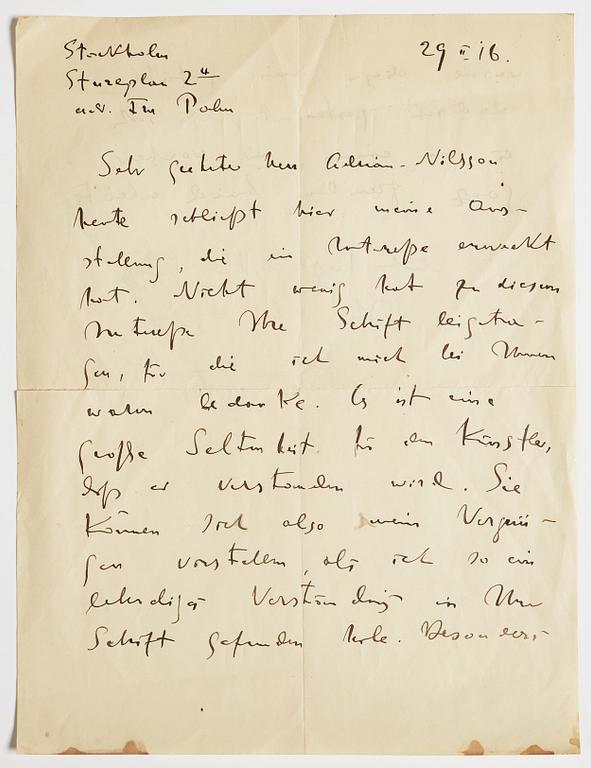 Stockholm 29 II 16.
Stureplan 2 II
adr. Frn Palm
Sehr geehrter Herr Adrian-Nilsson
heute schließt hier meine Aus-
stellung, die ein Intereße erweckt
hat. Nicht wenig hat zu diesem
Intereße Ihre Schrift beigetra-
gen, für die ich mich bei Ihnen
warm bedanke. Es ist eine
große Seltenheit für den Künstler,
daß er verstanden wird. Sie
können sich also mein Vergnü-
gen vorstellen, als ich so ein
lebendiges Verständnis in Ihrer
Schrift gefunden habe. Besonders